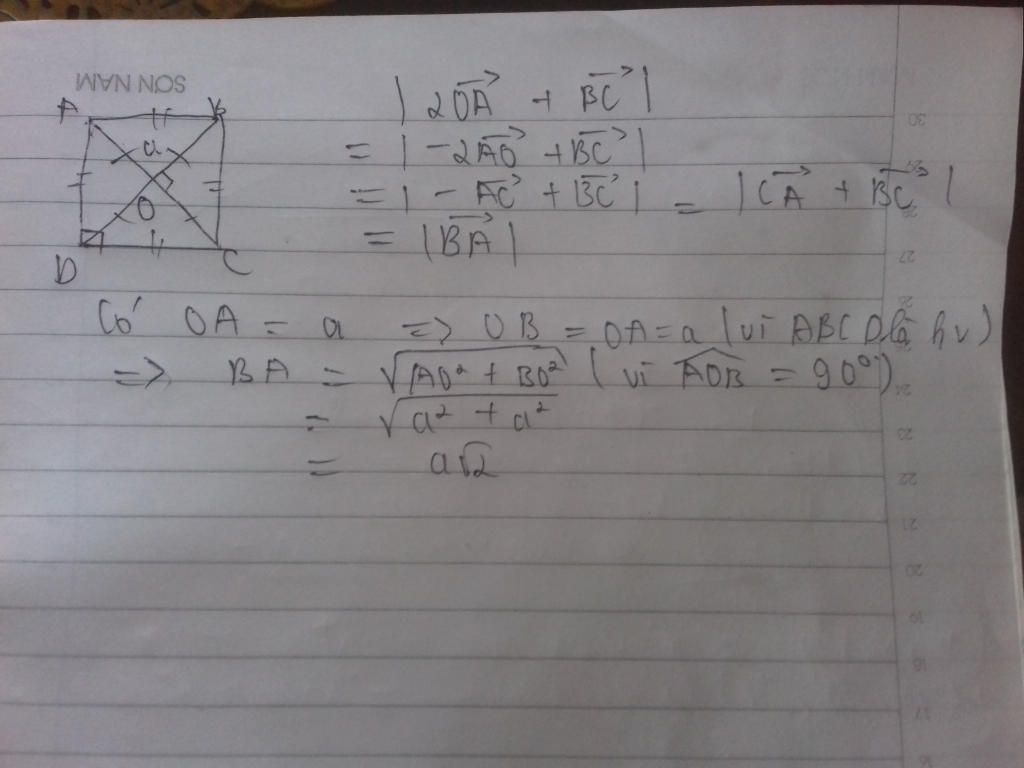 SƠN NAM
A B
a
O
D C
| 2\overrightarrow{OA} + \overrightarrow{BC} |
= | -2\overrightarrow{AO} + \overrightarrow{BC} |
= | - \overrightarrow{AC} + \overrightarrow{BC} | = | \overrightarrow{CA} + \overrightarrow{BC} |
= | \overrightarrow{BA} |
Có OA = a => OB = OA = a (vì ABCD là hv)
=> BA = √(AO² + BO²) (vì \widehat{AOB} = 90°)
= √(a² + a²)
= a√2
30
29
28
27
26
25
24
23
22
21
20
19
18
17
16